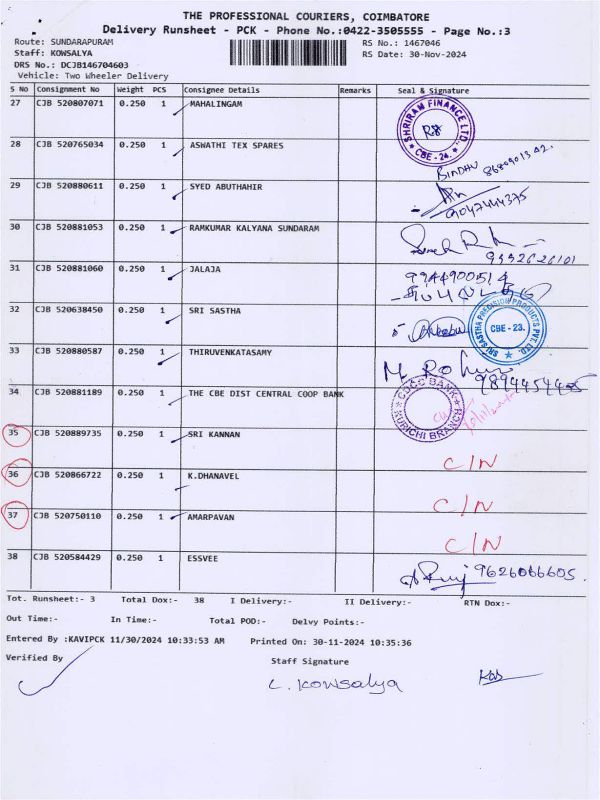 THE PROFESSIONAL COURIERS, COIMBATORE
Delivery Runsheet - PCK - Phone No.:0422-3505555 - Page No.:3
Route: SUNDARAPURAM RS No.: 1467046
Staff: KOWSALYA RS Date: 30-Nov-2024
DRS No.: DCJB146704603
Vehicle: Two Wheeler Delivery
S No Consignment No Weight PCS Consignee Details Remarks Seal & Signature
27 CJB 520807071 0.250 1 MAHALINGAM
SHRIRAM FINANCE LTD. CBE - 24.
28 CJB 520765034 0.250 1 ASWATHI TEX SPARES
BINDHU
29 CJB 520880611 0.250 1 SYED ABUTHAHIR
9047444375
30 CJB 520881053 0.250 1 RAMKUMAR KALYANA SUNDARAM
31 CJB 520881060 0.250 1 JALAJA
9944900514
32 CJB 520638450 0.250 1 SRI SASTHA
SRI SASTHA PRECISION PRODUCTS PVT. LTD. CBE - 23.
33 CJB 520880587 0.250 1 THIRUVENKATASAMY
34 CJB 520881189 0.250 1 THE CBE DIST CENTRAL COOP BANK
CDCC BANK KURICHI BRANCH
35 CJB 520889735 0.250 1 SRI KANNAN C/N
36 CJB 520866722 0.250 1 K.DHANAVEL C/N
37 CJB 520750110 0.250 1 AMARPAVAN C/N
38 CJB 520584429 0.250 1 ESSVEE 9626066605.
Tot. Runsheet:- 3 Total Dox:- 38 I Delivery:- II Delivery:- RTN Dox:-
Out Time:- In Time:- Total POD:- Delvy Points:-
Entered By :KAVIPCK 11/30/2024 10:33:53 AM Printed On: 30-11-2024 10:35:36
Verified By Staff Signature
L. Kowsalya